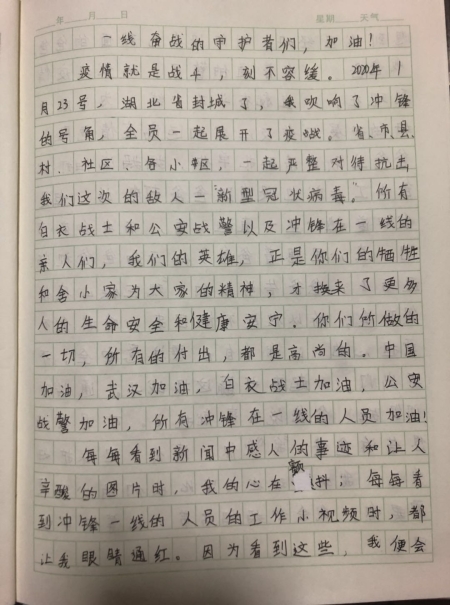 年 月 日 星期 天气
一线奋战的守护者们，加油！
疫情就是战斗，刻不容缓。2020年1
月23号，湖北省封城了，我吹响了冲锋
的号角，全员一起展开了疫战。省、市、县、
村、社区、各小区，一起严整对待抗击
我们这次的敌人—"新型冠状病毒"。所有
白衣战士和公安战警以及冲锋在一线的
亲人们，我们的英雄，正是你们的牺牲
和舍小家为大家的精神，才换来了更多
人的生命安全和健康安宁。你们所做的
一切，所有的付出，都是高尚的。中国
加油，武汉加油，白衣战士加油，公安
战警加油，所有冲锋在一线的人员加油！
每每看到新闻中感人的事迹和让人
辛酸的图片时，我的心在颤抖；每每看
到冲锋一线的人员的工作小视频时，都
让我眼睛通红。因为看到这些，我便会